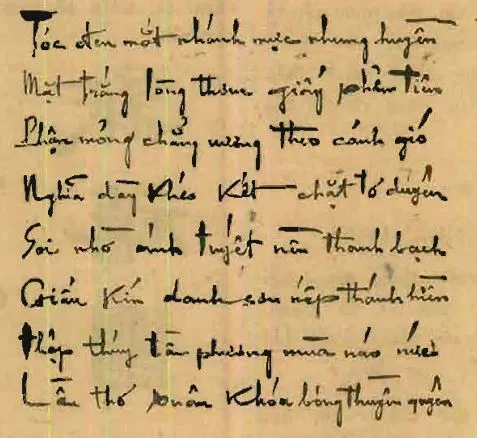 Tóc đen mớt nhánh mực nhung huyền
Mặt trắng lồng thơm giấy phấn tiên
Phận mỏng chẳng vương theo cánh gió
Nghĩa dày khéo kết chặt tơ duyên
Soi nhờ ánh tuyết nên thanh bạch
Giấu kín danh sau nếp thánh hiền
thấp thúy tầm phương mùa náo nức
Lần thơ xuân khóa bóng thuyền quyên